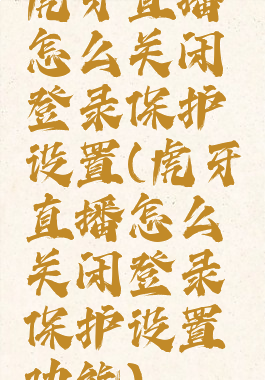 虎牙直播
怎么关闭
登录保护
设置(虎牙
直播怎么
关闭登录
保护设置